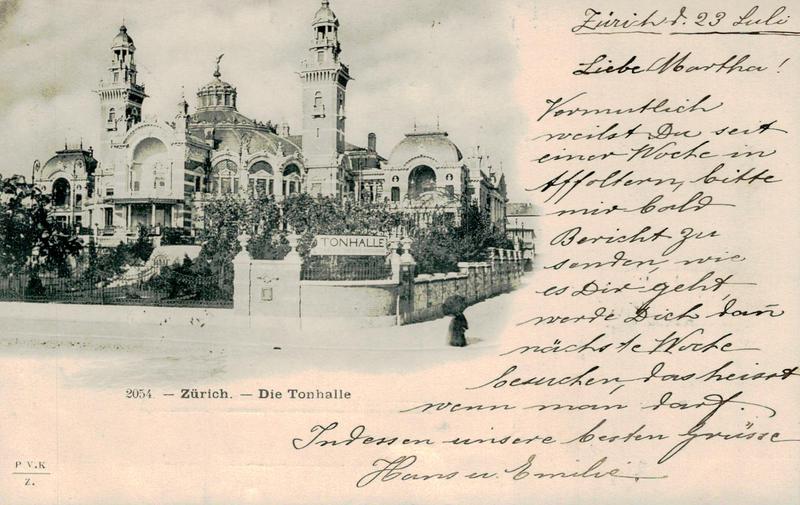 Zürich d. 23 Juli
Liebe Martha!
Vermutlich
weilst Du seit
einer Woche in
Affoltern, bitte
mir bald
Bericht zu
senden, wie
es Dir geht,
werde Dich dan̄
nächste Woche
besuchen, das heisst
wenn man darf.
Indessen unsere besten Grüsse
Hans u. Emilie.
TONHALLE
2054. — Zürich. — Die Tonhalle
P.V.K
Z.